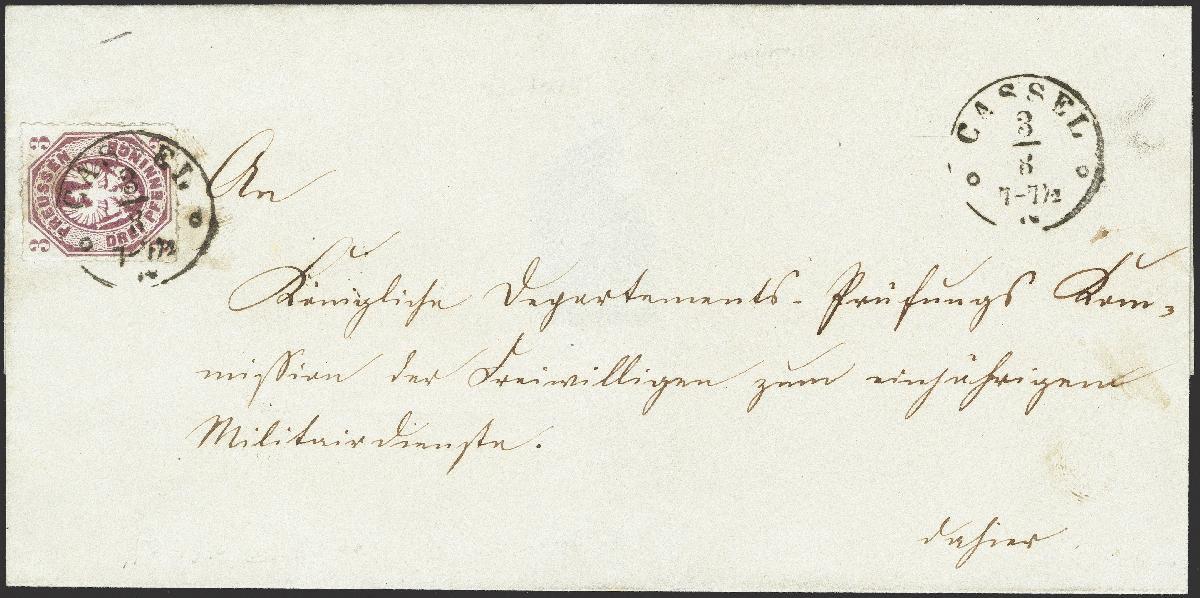 CASSEL
3
8
7-7½
3
PREUSSEN
DREI PFENNINGE
3
CASSEL
7-7½
An
Königliche Departements-Prüfungs Kom-
mission der Freiwilligen zum einjährigem
Militairdienste.
dahier